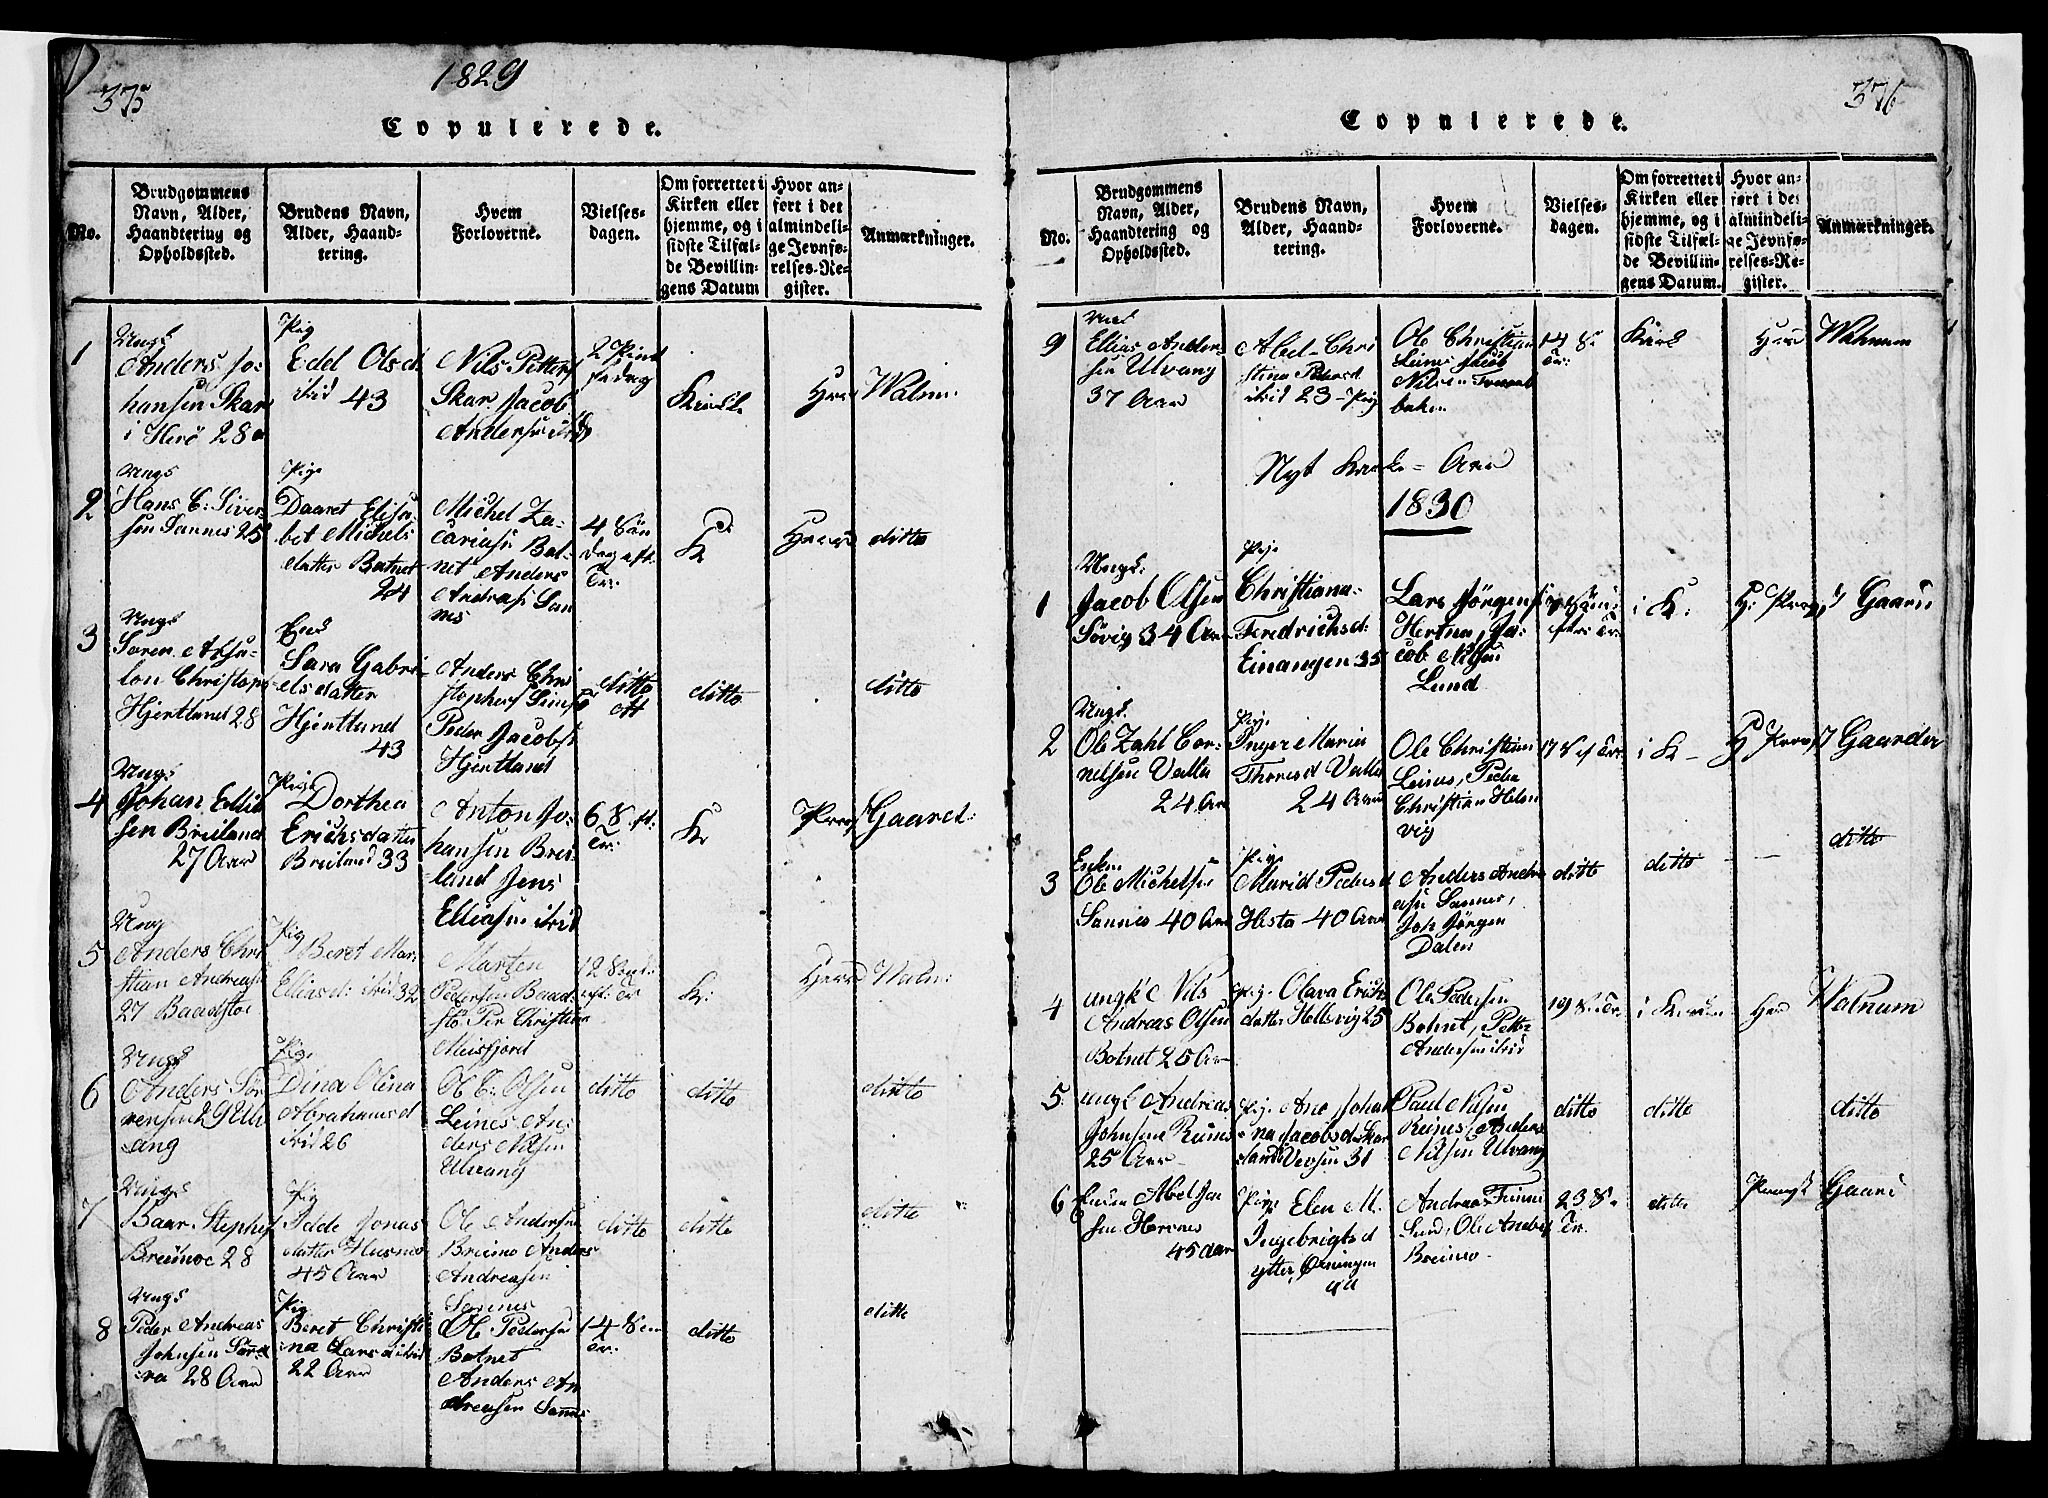 375
1829
Copulerede.
No.
Brudgommens
Navn, Alder,
Haandtering og
Opholdssted.
Brudens Navn,
Alder, Haand-
tering.
Hvem
Forloverne.
Vielses-
dagen.
Om forrettet i
Kirken eller
hjemme, og i
sidste Tilfæl-
de Bevillin-
gens Datum
Hvor an-
ført i det
almindeli-
ge Jevnfø-
relses-Re-
gister.
Anmærkninger.
1
Ungk
Anders Jo-
hansen Skar
i Herö 28
Pig
Edel Olsd
ibid 43
Nils Petters
Skar. Jacob
Andersen ibid
2 Pint
sedag
Kirke
Hr
Waln:
2
Ungs
Hans C: Siver-
sen Sannes 25
Pige
Daaret Elisa-
bet Michels
datter Botnet
24
Michel Za-
cariasen Bot-
net Anders
Andreas San
nes
4 Søn
dag eft.
Tr:
K
Herr
ditto
3
Ungs
Søren Absa-
lon Christoph
Hjertland 28
Enke
Sara Gabri-
elsdatter
Hjertland
43
Anders Chri
stophers
Peder Jacobs
Hjertland
ditto
ditto
ditto
4
Ungs
Johan Ellia
sen Breiland
27 Aar
Pige
Dorthea
Erichsdatter
Breiland 33
Anton Jo-
hansen Brei-
land Jens
Elliasen ibid
6 S. ft:
Tr:
K
Provs
Gaard:
5
Ung
Anders Chri
stian Andreas
27 Baadstoe
Pig
Beret Mar.
Eliasd: ibid 32
Marten
Pedersen Baad-
stö Per Christian
Meisfjord
12 Sønd:
eft: Tr
K:
Herr
Waln:
6
Ungs
Anders Sör-
rensen 29 Ul
vang
Pig.
Dina Olina
Abrahamsd
ibid 26
Ole C: Olsen
Leines An-
ders Nilsen
Ulvang
ditto
ditto
ditto
7
Ungs
Baar Stephens
Breimoe 28
Pig
Adde Jonas
datter Husmo
45 Aar
Ole Andersen
Breimo Anders
Andreasen
Sannes
ditto
ditto
ditto
8
Ungs
Peder Andreas
Johnsen Sør
ra 28 Aar
Pig
Beret Christi
na Larsd ibid
22 Aar
Ole Pedersen
Botnet
Anders An
dreasen Sannes
14 S
Tr:
ditto
ditto
376
Copulerede.
No.
Brudgommens
Navn, Alder,
Haandtering og
Opholdssted.
Brudens Navn,
Alder, Haand-
tering.
Hvem
Forloverne.
Vielses-
dagen.
Om forrettet i
Kirken eller
hjemme, og i
sidste Tilfæl-
de Bevillin-
gens Datum.
Hvor an-
ført i det
almindeli-
ge Jevnfø-
relses-Re-
gister.
Anmærkninger.
9
Ellias Ander-
sen Ulvang
37 Aar
Abel-Chri
stina Pedersd
ibid 23 - Pig
Ole Christian
Leines Jacob
Nilsen
baken
14 S
Tr:
Kirk
Herr
Walnum
Nyt Kirke-Aar
1830
1
Ungk:
Jacob Olsen
Søvig 34 Aar
Pige
Christiana-
Fredrichsd:
Einangen 35
Lars Jörgens
Hertna, Ja-
cob Nilsen
Lund
Søn:
efter Tr:
i K:
H: Provst
Gaard
2
Ungk.
Ole Zahl Cor-
nelsen Valla
24 Aar
Pige
Inger Maria
Thoresd Valla
24 Aar
Ole Christian
Leines, Peder
Christian Helsn
vig
17 S ef Tr.
i K -
H Provst
Gaarder
3
Enkm:
Ole Michelsen
Sannes 40 Aar
Pige
Marid Pedersd
Hesta 40 Aar
Anders Andre
asen Sannes,
Joh Jörgen
Dalen
ditto
ditto
ditto
4
ungk Nils
Andreas Olsen
Botnet 25 Aar
pige Olava Erichs
datter Hellesvig 25
Ole Pedersen
Botnet, Petter
Andersen ibid
19 S. Tr.
i Kirken
Herr
Walnum
5
ungk Andreas
Johnsen Reines
25 Aar
pige Ane Johan
na Jacobsd Skar
land Vevsen 31
Paul Nilsen
Reines, Anders
Nilsen Ulvang
ditto
ditto
ditto
6
Enkem Abel Jon
sen Hernes
45 aar
Pige Elen M.
Ingebrigtsd
ytter Øxningen
Andreas Finne
Lund, Ole Anders
Breimo
23 S
Tr.
ditto
Provst
Gaard